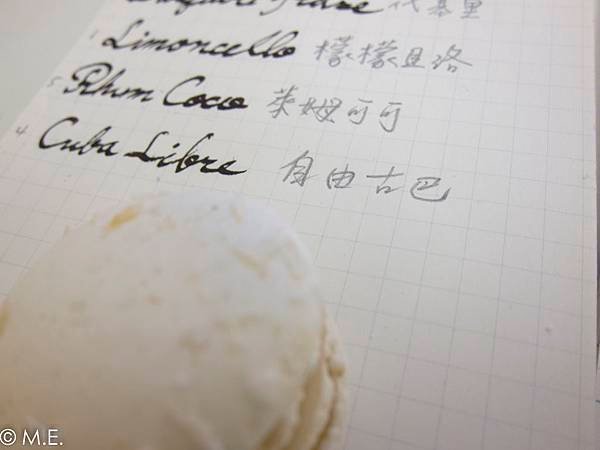 代基里
Limoncello 檬檬且洛
5 Rhum Coco 萊姆可可
4 Cuba Libre 自由古巴
© M.E.